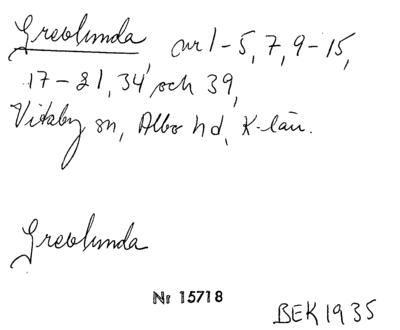 Grevlunda, nr 1-5, 7, 9-15,
17-21, 34 och 39,
Vitaby sn, Albo hd, K-län.
Grevlunda
Nr 15718
BEK 1935